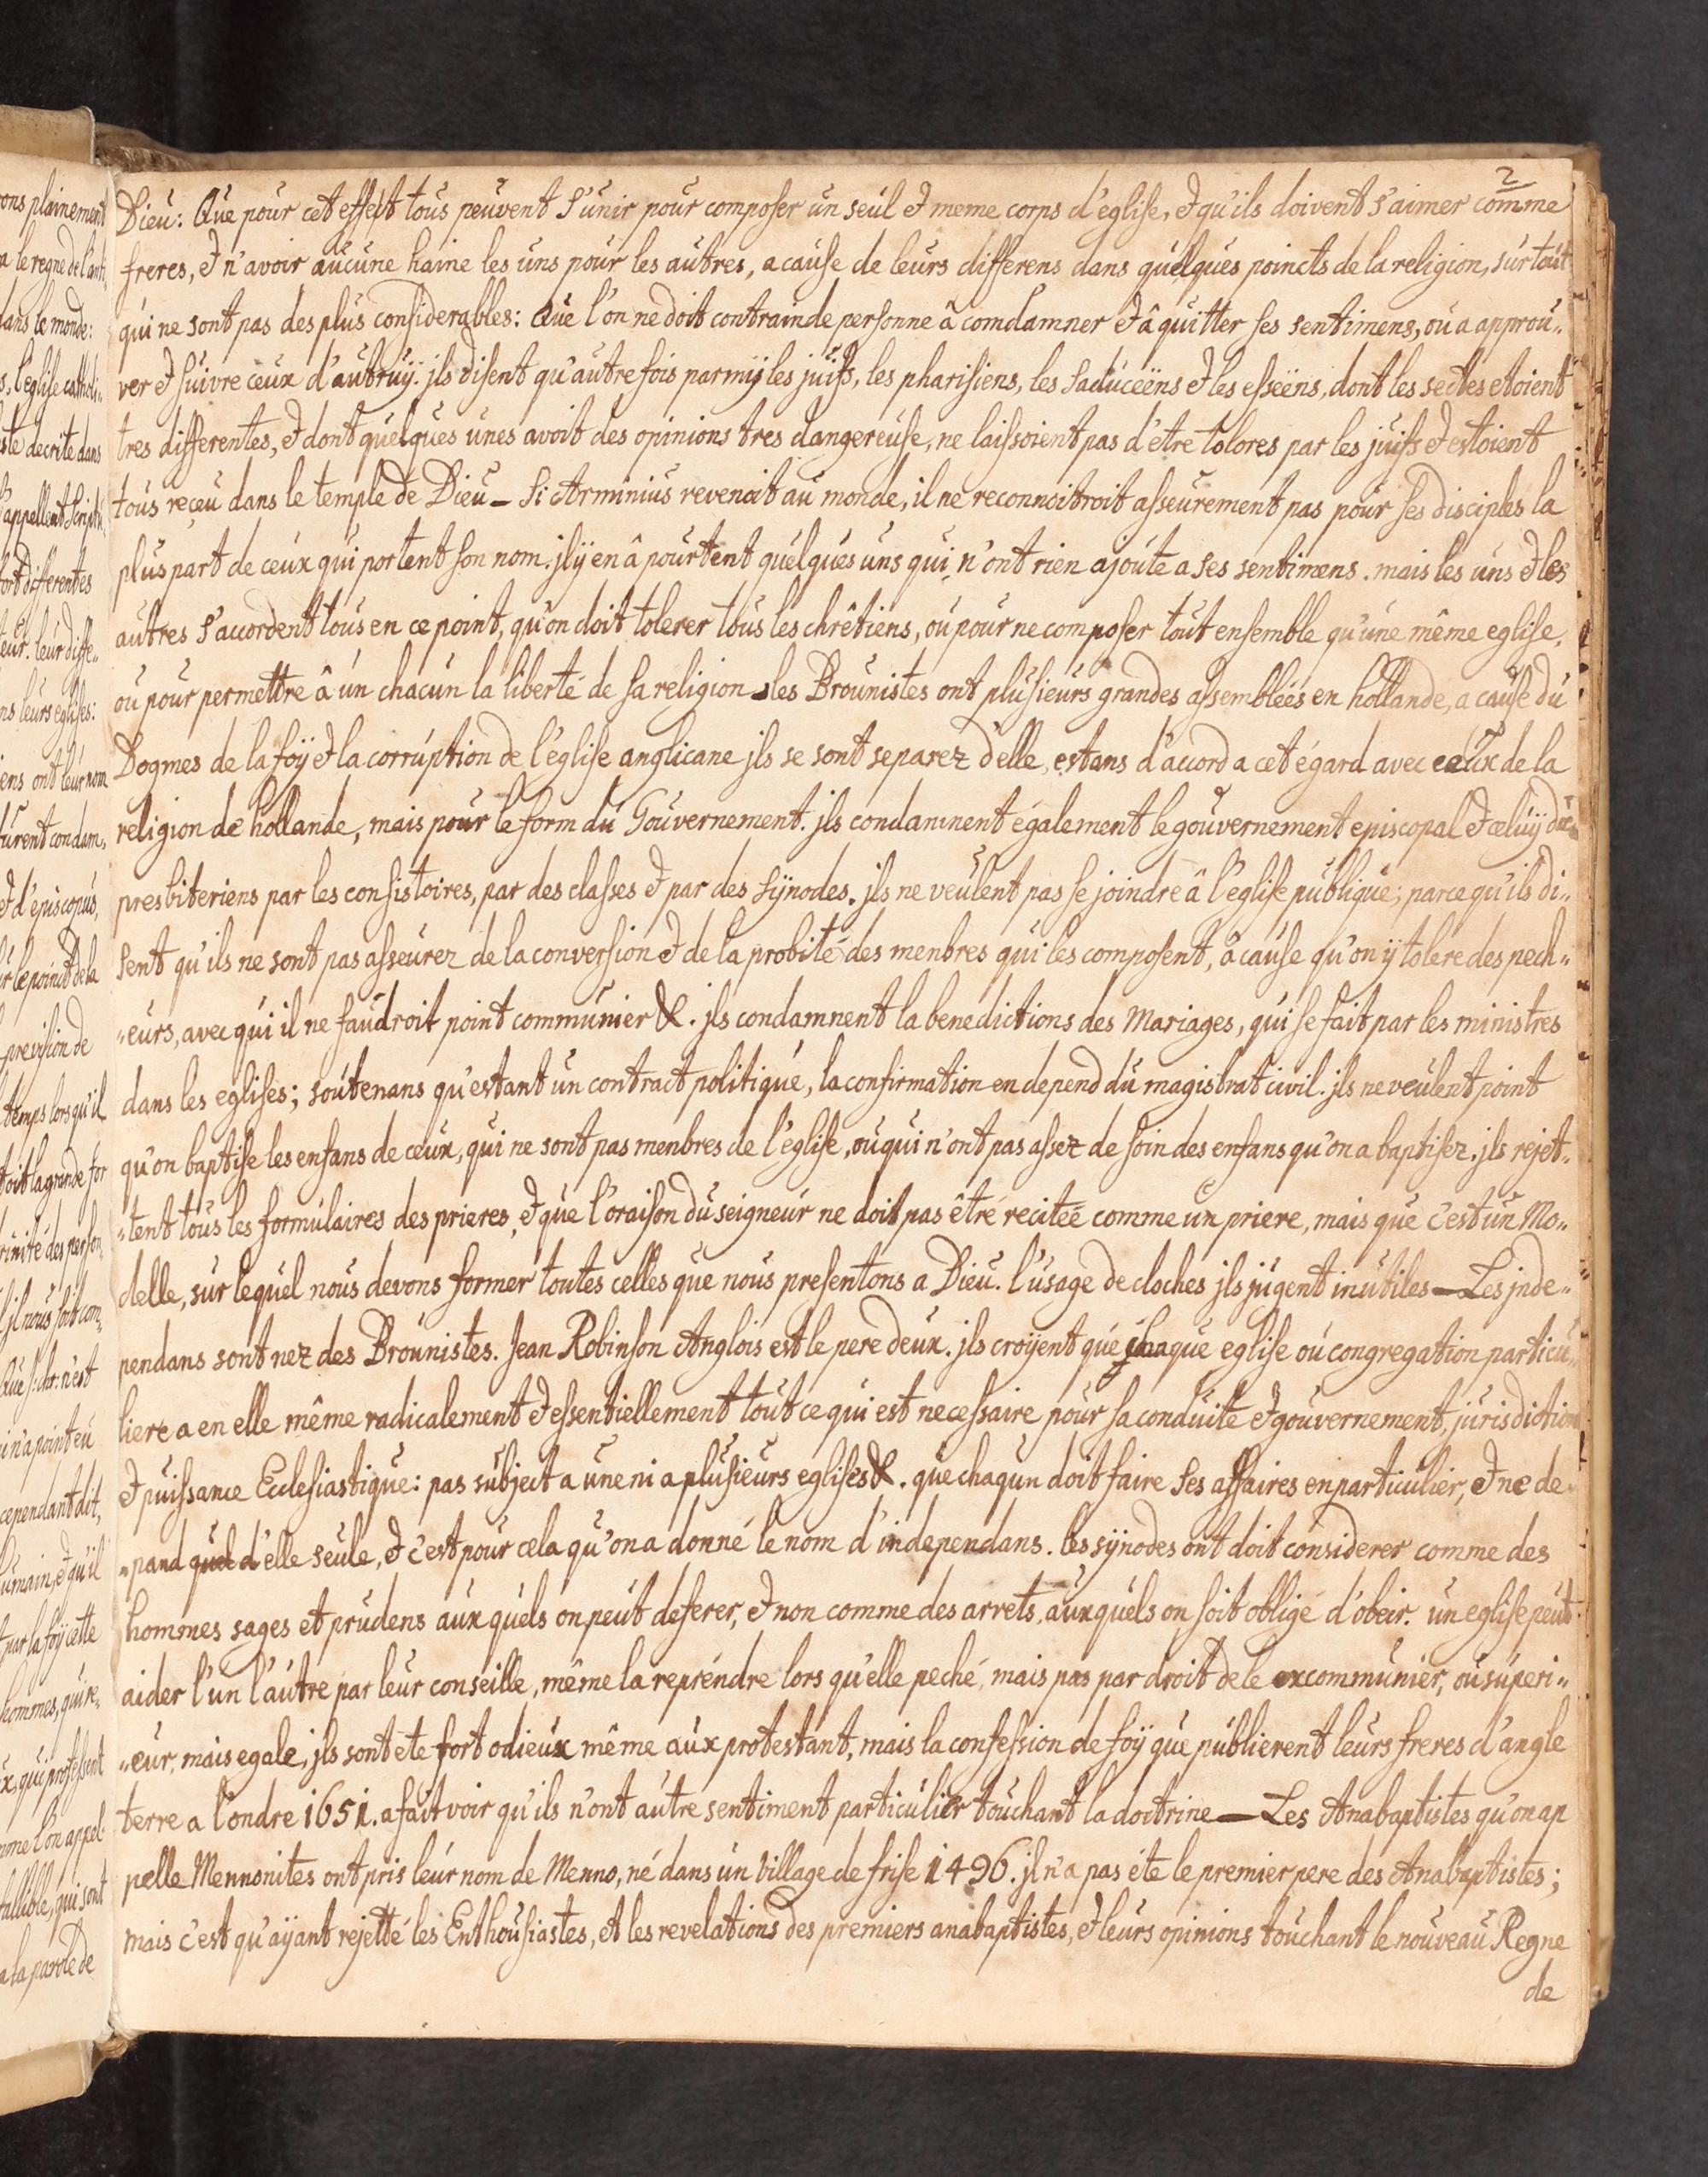 2
Dieu: Que pour cet effect tous peuvent s'unir pour composer un seul et meme corps d'eglise, et qu'ils doivent s'aimer comme
freres, et n'avoir aucune haine les uns pour les autres, a cause de leurs differens dans quelques poincts de la religion, sur tout
qui ne sont pas des plus considerables: Que l'on ne doit contrainde personne â comdamner et â quitter ses sentimens, ou a approu„
ver et suivre ceux d'autruÿ. jls disent qu'autrefois parmÿ les juifs, les pharisiens, les saduceëns et les esseëns, dont les sectes etoient
tres differentes, et dont quelques unes avoit des opinions tres dangereuse, ne laissoient pas d'etre tolores par les juifs et estoient
tous reçeu dans le temple de Dieu _ si Arminius revenoit au monde, il ne reconnoitroit asseurement pas pour ses disciples la
plus part de ceux qui portent son nom. jl ÿ en â pourtent quelques uns qui n'ont rien ajoute a ses sentimens. mais les uns et les
autres s'accordent tous en ce point, qu'on doit tolerer tous les chrêtiens, ou pour ne composer tout ensemble qu'une même eglise,
ou pour permettre â un chacun la liberté de sa religion _ les Brounistes ont plusieurs grandes assembleés en hollande, a cause du
Dogmes de la foÿ et la corruption de l'église anglicane jls se sont separez d'elle, estans d'accord a cet égard avec ceux de la
religion de hollande, mais pour le form du Gouvernement. jls condamnent également le gouvernement episcopal et celuÿ du
presbiteriens par les consistoires, par des classes et par des sÿnodes. jls ne veulent pas se joindre â l'eglise publique; parce qu'ils di„
sent qu'ils ne sont pas asseurez de la conversion et de la probité des menbres qui les composent, â cause qu'on ÿ tolere des pech„
„eurs, avec qui il ne faudroit point communier &. jls condamnent la benedictions des Mariages, qui se fait par les ministres
dans les eglises; soutenans qu'estant un contract politique, la confirmation en depend du magistrat civil. jls ne veulent point
qu'on baptise les enfans de ceux, qui ne sont pas menbres de l'eglise, ou qui n'ont pas assez de soin des enfans qu'on a baptisez. jls rejet„
„tent tous les formulaires des prieres, et que l'oraison du seigneur ne doit pas être reciteé comme un priere, mais que c'est un Mo„
delle, sur lequel nous devons former toutes celles que nous presentons a Dieu. l'usage de cloches jls jugent inutiles — Les jnde„
pendans sont nez des Brounistes. Jean Robinson Anglois est le pere deux. jls croÿent que chaque eglise ou congregation particu„
liere a en elle même radicalement et essentiellement tout ce qui est necessaire pour sa conduite et gouvernement, jurisdiction
et puissance Ecclesiastique: pas subject a une ni a plusieurs eglises &. que chaqun doit faire ses affaires en particulier, et ne de„
„pand quel d'elle seule, et c'est pour cela qu'on a donné le nom d'independans. les sÿnodes ont doit considerer comme des
hommes sages et prudens aux quels on peut deferer, et non comme des arrets, aux quels on soit obligé d'obeir. un eglise peut
aider l'un l'autre par leur conseille, même la reprendre lors qu'elle peché, mais pas par droit de le excommunier, ou superi„
„eur, mais egale, jls sont ete fort odieux même aux protestant, mais la confession de foÿ que publierent leurs freres d'angle
terre a l'ondre 1651. a fait voir qu'ils n'ont autre sentiment particulier touchant la doctrine — Les Anabaptistes qu'on ap
pelle Mennonites ont pris leur nom de Menno, né dans un Village de frise 1496. jl n'a pas éte le premier pere des Anabaptistes;
mais c'est qu'aÿant rejetté les Enthousiastes, et les revelations des premiers anabaptistes, et leurs opinions touchant le nouveau Regne
de